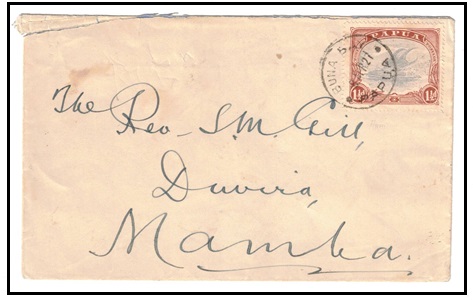 PAPUA
1½ 1½
BUNA
PAPUA
The
Rev. S. M. Gill,
Duvira,
Mamba.